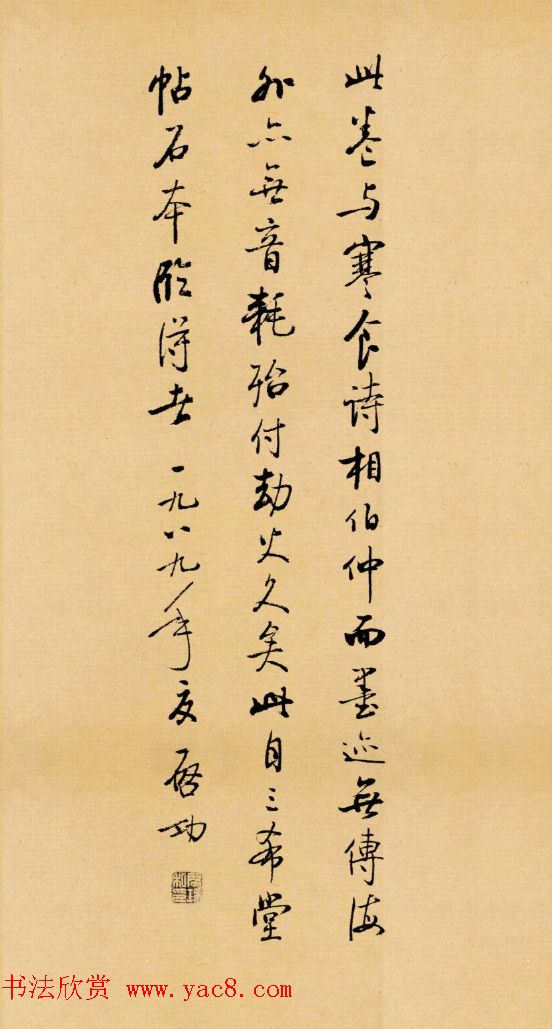 此卷与寒食诗相伯仲而墨迹无傳海
外亦无音耗殆付劫火久矣此自三希堂
帖石本临得者一九八九年夏启功
书法欣赏 www.yac8.com